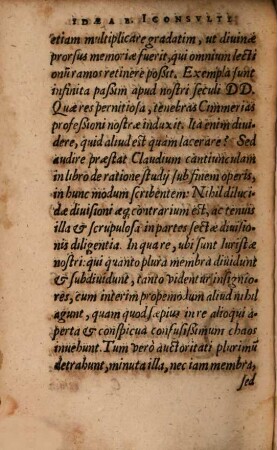 IDÆA B. ICONSVLTE
etiam multiplicare gradatim, ut diuinæ
prorsus memoriæ fuerit, qui omnium lecti
onũ ramos retinere poßit. Exempla sunt
infinita paßim apud nostri seculi DD.
Quæ res pernitiosa, tenebras Cimmerias
professioni nostræ induxit. Ita enim diui
dere, quid aliud est quam lacerare? Sed
audire præstat Claudium cantiunculam
in libro de ratione study sub finem operis,
in hunc modum scribentem: Nihil diluci
dæ diuisioni æq; contrarium est, ac tenuis
illa & scrupulosa in partes sectæ diuisio
nis diligentia. In qua re, ubi sunt Iuristæ
nostri: qui quanto plura membra diuidunt
& subdiuidunt, tanto videntur insignio-
res, cum interim propemodum aliud nihil
agunt, quam quod sæpius in re alioqui a-
perta & conspicua confusißimum chaos
inuehunt. Tum verò auctoritati plurimũ
detrahunt, minuta illa, nec iam membra,
sed